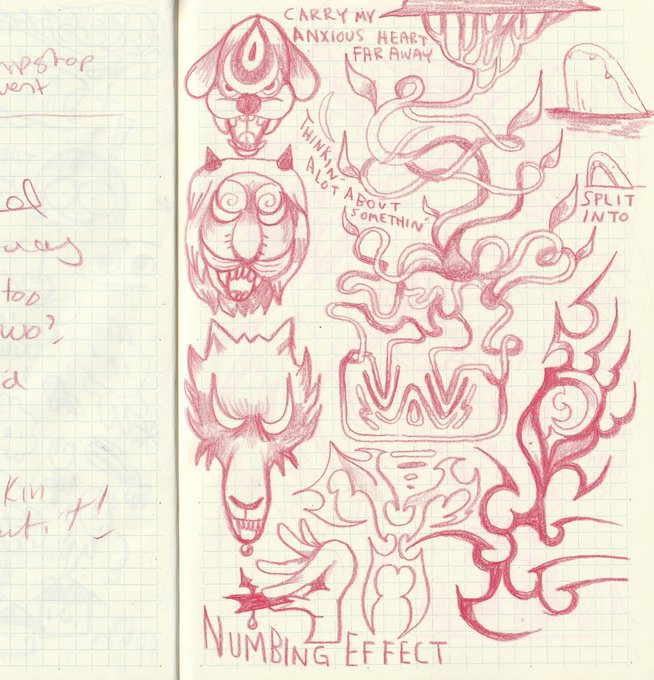 vent
too
wo?
kin
CARRY MY
ANXIOUS HEART
FAR AWAY
THINKIN
ALOT ABOUT
SOMETHIN'
SPLIT
INTO
NUMBING EFFECT